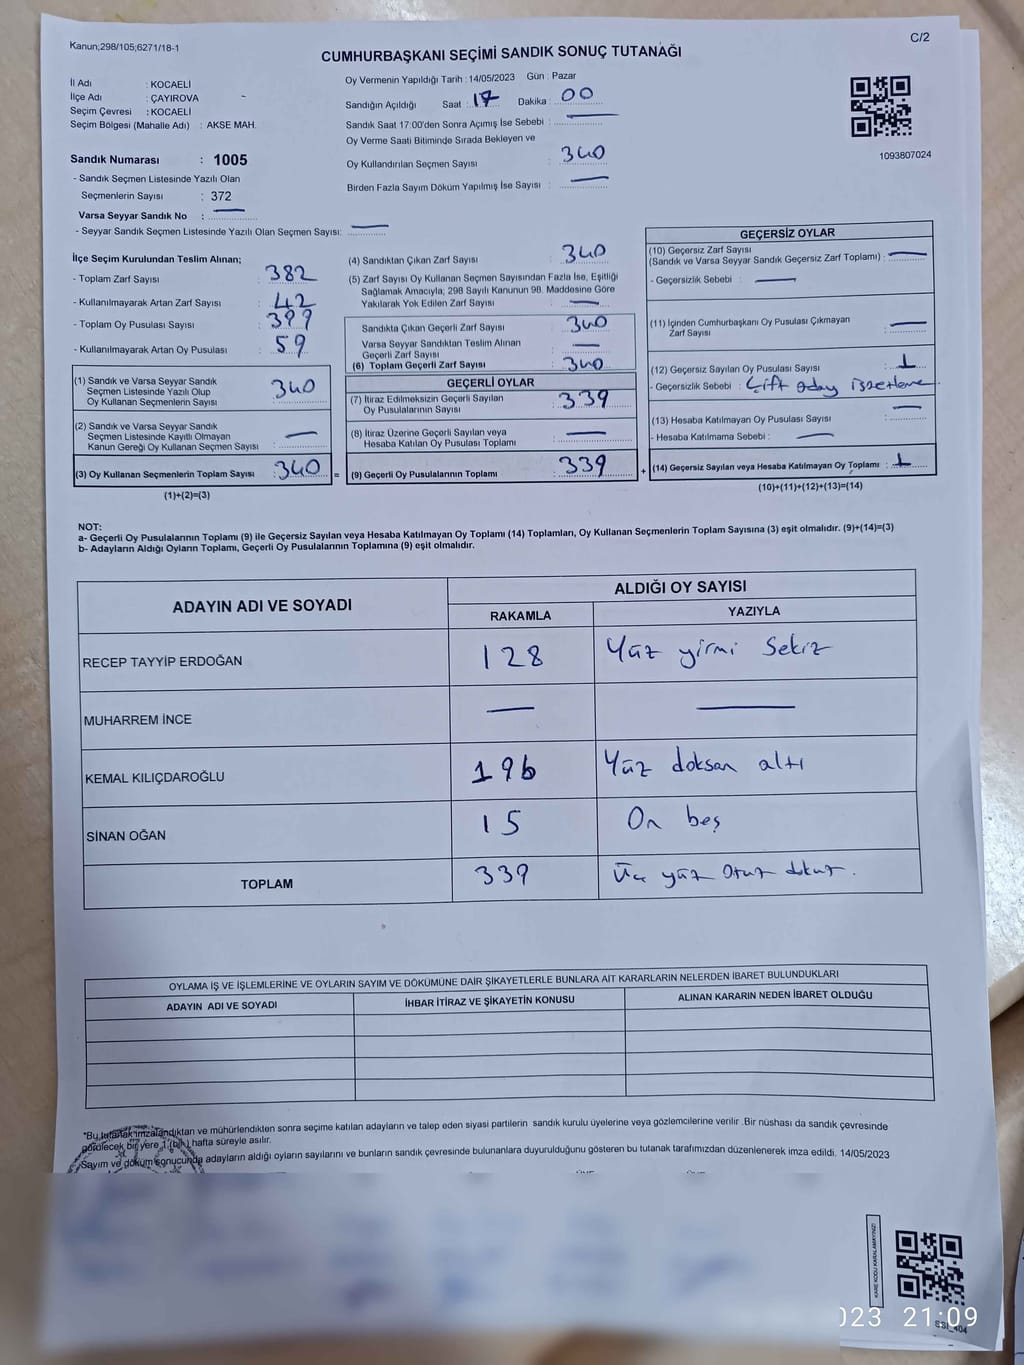 Kanun;298/105;6271/18-1
C/2
CUMHURBAŞKANI SEÇİMİ SANDIK SONUÇ TUTANAĞI
İl Adı : KOCAELİ
İlçe Adı : ÇAYIROVA -
Seçim Çevresi : KOCAELİ
Seçim Bölgesi (Mahalle Adı) : AKSE MAH.
Sandık Numarası : 1005
- Sandık Seçmen Listesinde Yazılı Olan
Seçmenlerin Sayısı : 372
Varsa Seyyar Sandık No : —
- Seyyar Sandık Seçmen Listesinde Yazılı Olan Seçmen Sayısı: —
Oy Vermenin Yapıldığı Tarih : 14/05/2023 Gün : Pazar
Sandığın Açıldığı Saat : 17 Dakika : 00
Sandık Saat 17:00'den Sonra Açımış İse Sebebi : —
Oy Verme Saati Bitiminde Sırada Bekleyen ve
Oy Kullandırılan Seçmen Sayısı : 340
Birden Fazla Sayım Döküm Yapılmış İse Sayısı : —
1093807024
İlçe Seçim Kurulundan Teslim Alınan;
- Toplam Zarf Sayısı : 382
- Kullanılmayarak Artan Zarf Sayısı : 42
- Toplam Oy Pusulası Sayısı : 399
- Kullanılmayarak Artan Oy Pusulası : 59
(1) Sandık ve Varsa Seyyar Sandık
Seçmen Listesinde Yazılı Olup
Oy Kullanan Seçmenlerin Sayısı : 340
(2) Sandık ve Varsa Seyyar Sandık
Seçmen Listesinde Kayıtlı Olmayan
Kanun Gereği Oy Kullanan Seçmen Sayısı : —
(3) Oy Kullanan Seçmenlerin Toplam Sayısı : 340 =
(1)+(2)=(3)
(4) Sandıktan Çıkan Zarf Sayısı : 340
(5) Zarf Sayısı Oy Kullanan Seçmen Sayısından Fazla İse, Eşitliği
Sağlamak Amacıyla, 298 Sayılı Kanunun 98. Maddesine Göre
Yakılarak Yok Edilen Zarf Sayısı : —
Sandıkta Çıkan Geçerli Zarf Sayısı : 340
Varsa Seyyar Sandıktan Teslim Alınan
Geçerli Zarf Sayısı : —
(6) Toplam Geçerli Zarf Sayısı : 340
GEÇERLİ OYLAR
(7) İtiraz Edilmeksizin Geçerli Sayılan
Oy Pusulalarının Sayısı : 339
(8) İtiraz Üzerine Geçerli Sayılan veya
Hesaba Katılan Oy Pusulası Toplamı : —
(9) Geçerli Oy Pusulalarının Toplamı : 339 +
GEÇERSİZ OYLAR
(10) Geçersiz Zarf Sayısı
(Sandık ve Varsa Seyyar Sandık Geçersiz Zarf Toplamı) : —
- Geçersizlik Sebebi : —
(11) İçinden Cumhurbaşkanı Oy Pusulası Çıkmayan
Zarf Sayısı : —
(12) Geçersiz Sayılan Oy Pusulası Sayısı : 1
- Geçersizlik Sebebi : Çift aday işaretleme
(13) Hesaba Katılmayan Oy Pusulası Sayısı : —
- Hesaba Katılmama Sebebi : —
(14) Geçersiz Sayılan veya Hesaba Katılmayan Oy Toplamı : 1
(10)+(11)+(12)+(13)=(14)
NOT:
a- Geçerli Oy Pusulalarının Toplamı (9) ile Geçersiz Sayılan veya Hesaba Katılmayan Oy Toplamı (14) Toplamları, Oy Kullanan Seçmenlerin Toplam Sayısına (3) eşit olmalıdır. (9)+(14)=(3)
b- Adayların Aldığı Oyların Toplamı, Geçerli Oy Pusulalarının Toplamına (9) eşit olmalıdır.
ADAYIN ADI VE SOYADI
ALDIĞI OY SAYISI
RAKAMLA YAZIYLA
RECEP TAYYİP ERDOĞAN 128 Yüz yirmi Sekiz
MUHARREM İNCE — —
KEMAL KILIÇDAROĞLU 196 Yüz doksan altı
SİNAN OĞAN 15 On beş
TOPLAM 339 Üç yüz Otuz dokuz.
OYLAMA İŞ VE İŞLEMLERİNE VE OYLARIN SAYIM VE DÖKÜMÜNE DAİR ŞİKAYETLERLE BUNLARA AİT KARARLARIN NELERDEN İBARET BULUNDUKLARI
ADAYIN ADI VE SOYADI İHBAR İTİRAZ VE ŞİKAYETİN KONUSU ALINAN KARARIN NEDEN İBARET OLDUĞU
*Bu tutanak imzalandıktan ve mühürlendikten sonra seçime katılan adayların ve talep eden siyasi partilerin sandık kurulu üyelerine veya gözlemcilerine verilir .Bir nüshası da sandık çevresinde
görülecek bir yere 1 (bir) hafta süreyle asılır.
Sayım ve döküm sonucunda adayların aldığı oyların sayılarını ve bunların sandık çevresinde bulunanlara duyurulduğunu gösteren bu tutanak tarafımızdan düzenlenerek imza edildi. 14/05/2023
KARE KODU KARALAMAYINIZ!
023 21:09